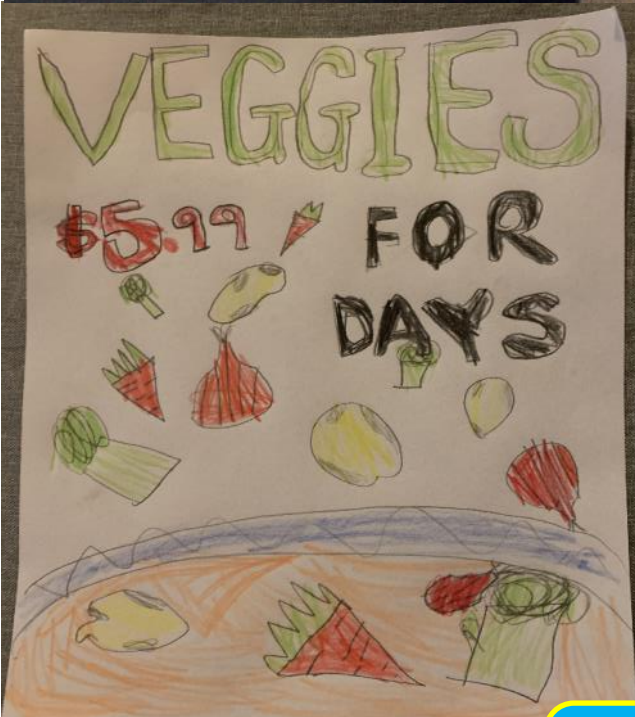 VEGGIES
$5.99 FOR
DAYS